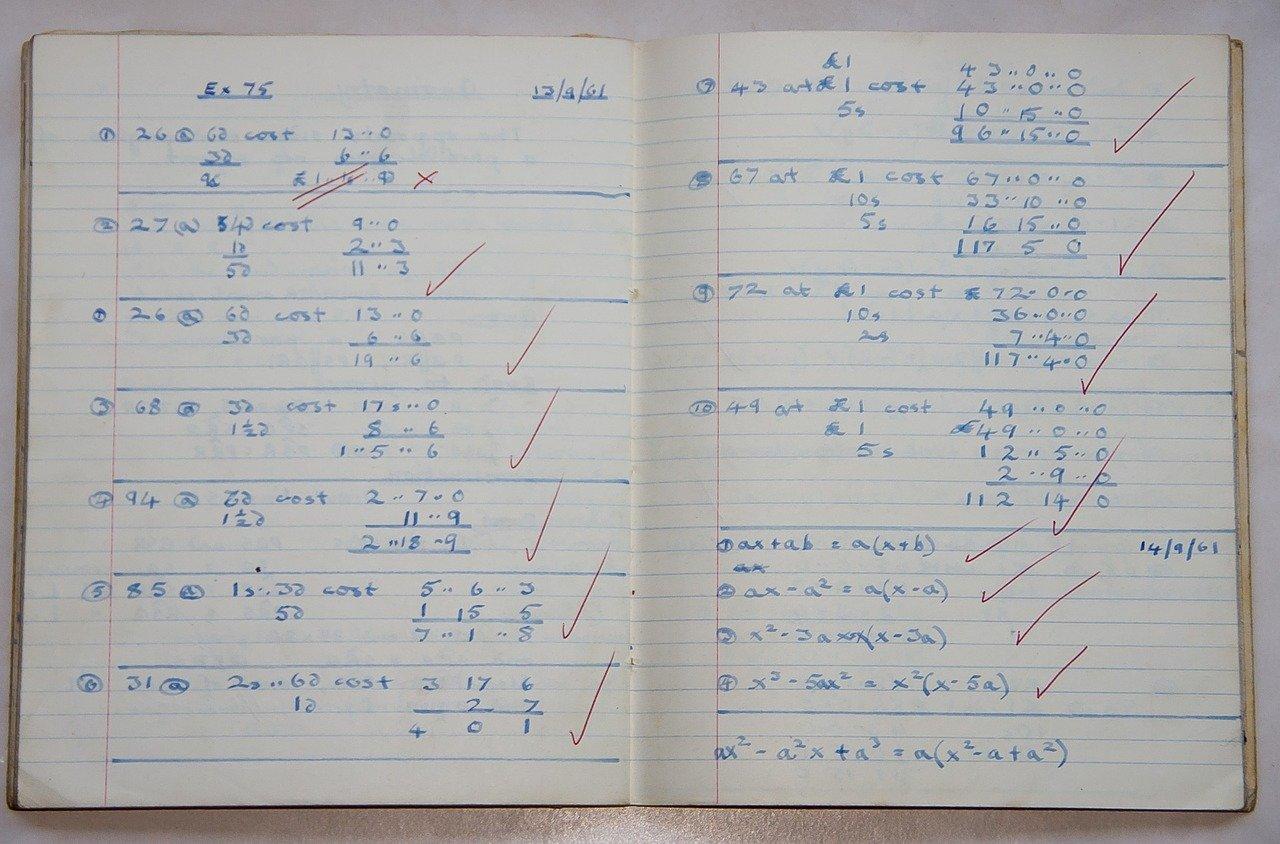 Ex 75 13/9/61
① 26 @ 6d cost 13..0
3d 6..6
② 27 @ cost 9..0
1d 2..3
5d 11..3
① 26 @ 6d cost 13..0
3d 6..6
19..6
③ 68 @ 3d cost 17s..0
1½d 8..6
1..5..6
④ 94 @ 6d cost 2..7..0
1½d 11..9
2..18..9
⑤ 85 @ 1s..3d cost 5..6..3
5d 1 15 5
7..1..8
⑥ 31 @ 2s..6d cost 3 17 6
1d 2 7
4 0 1
£1 43..0..0
⑦ 43 at £1 cost 43..0..0
5s 10..15..0
96..15..0
⑧ 67 at £1 cost 67..0..0
10s 33..10..0
5s 16 15..0
117 5 0
⑨ 72 at £1 cost £72..0..0
10s 36..0..0
2s 7..4..0
117..4..0
⑩ 49 at £1 cost 49..0..0
£1 £49..0..0
5s 12..5..0
2..9..0
112 14 0
① ax+ab = a(x+b) 14/9/61
ax
② ax-a² = a(x-a)
③ x²-3ax (x-3a)
④ x³-5ax² = x²(x-5a)
ax²-a²x+a³ = a(x²-a+a²)